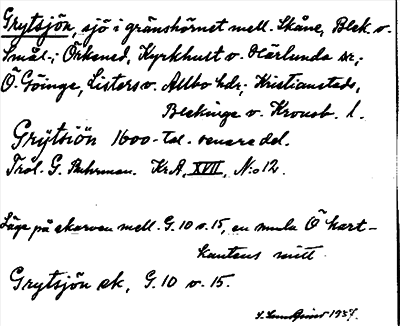 Grytsjön, sjö i gränshörnet mell. Skåne, Blek. o.
Smål.; Örkened, Kyrkhult o. Härlunda sr;
Ö. Göinge, Listers o. Allbo hdr; Kristianstads,
Blekinge o. Kronob. l.
Grÿtsiön 1600-tal. senare del.
Trol. G. Buhrman. Kr.A. XVII, N:o 12.
Läge på skarven mell. G. 10 o. 15, en mula Ö kart-
kantens mitt.
Grytsjön ek, G. 10 o. 15.
1937.